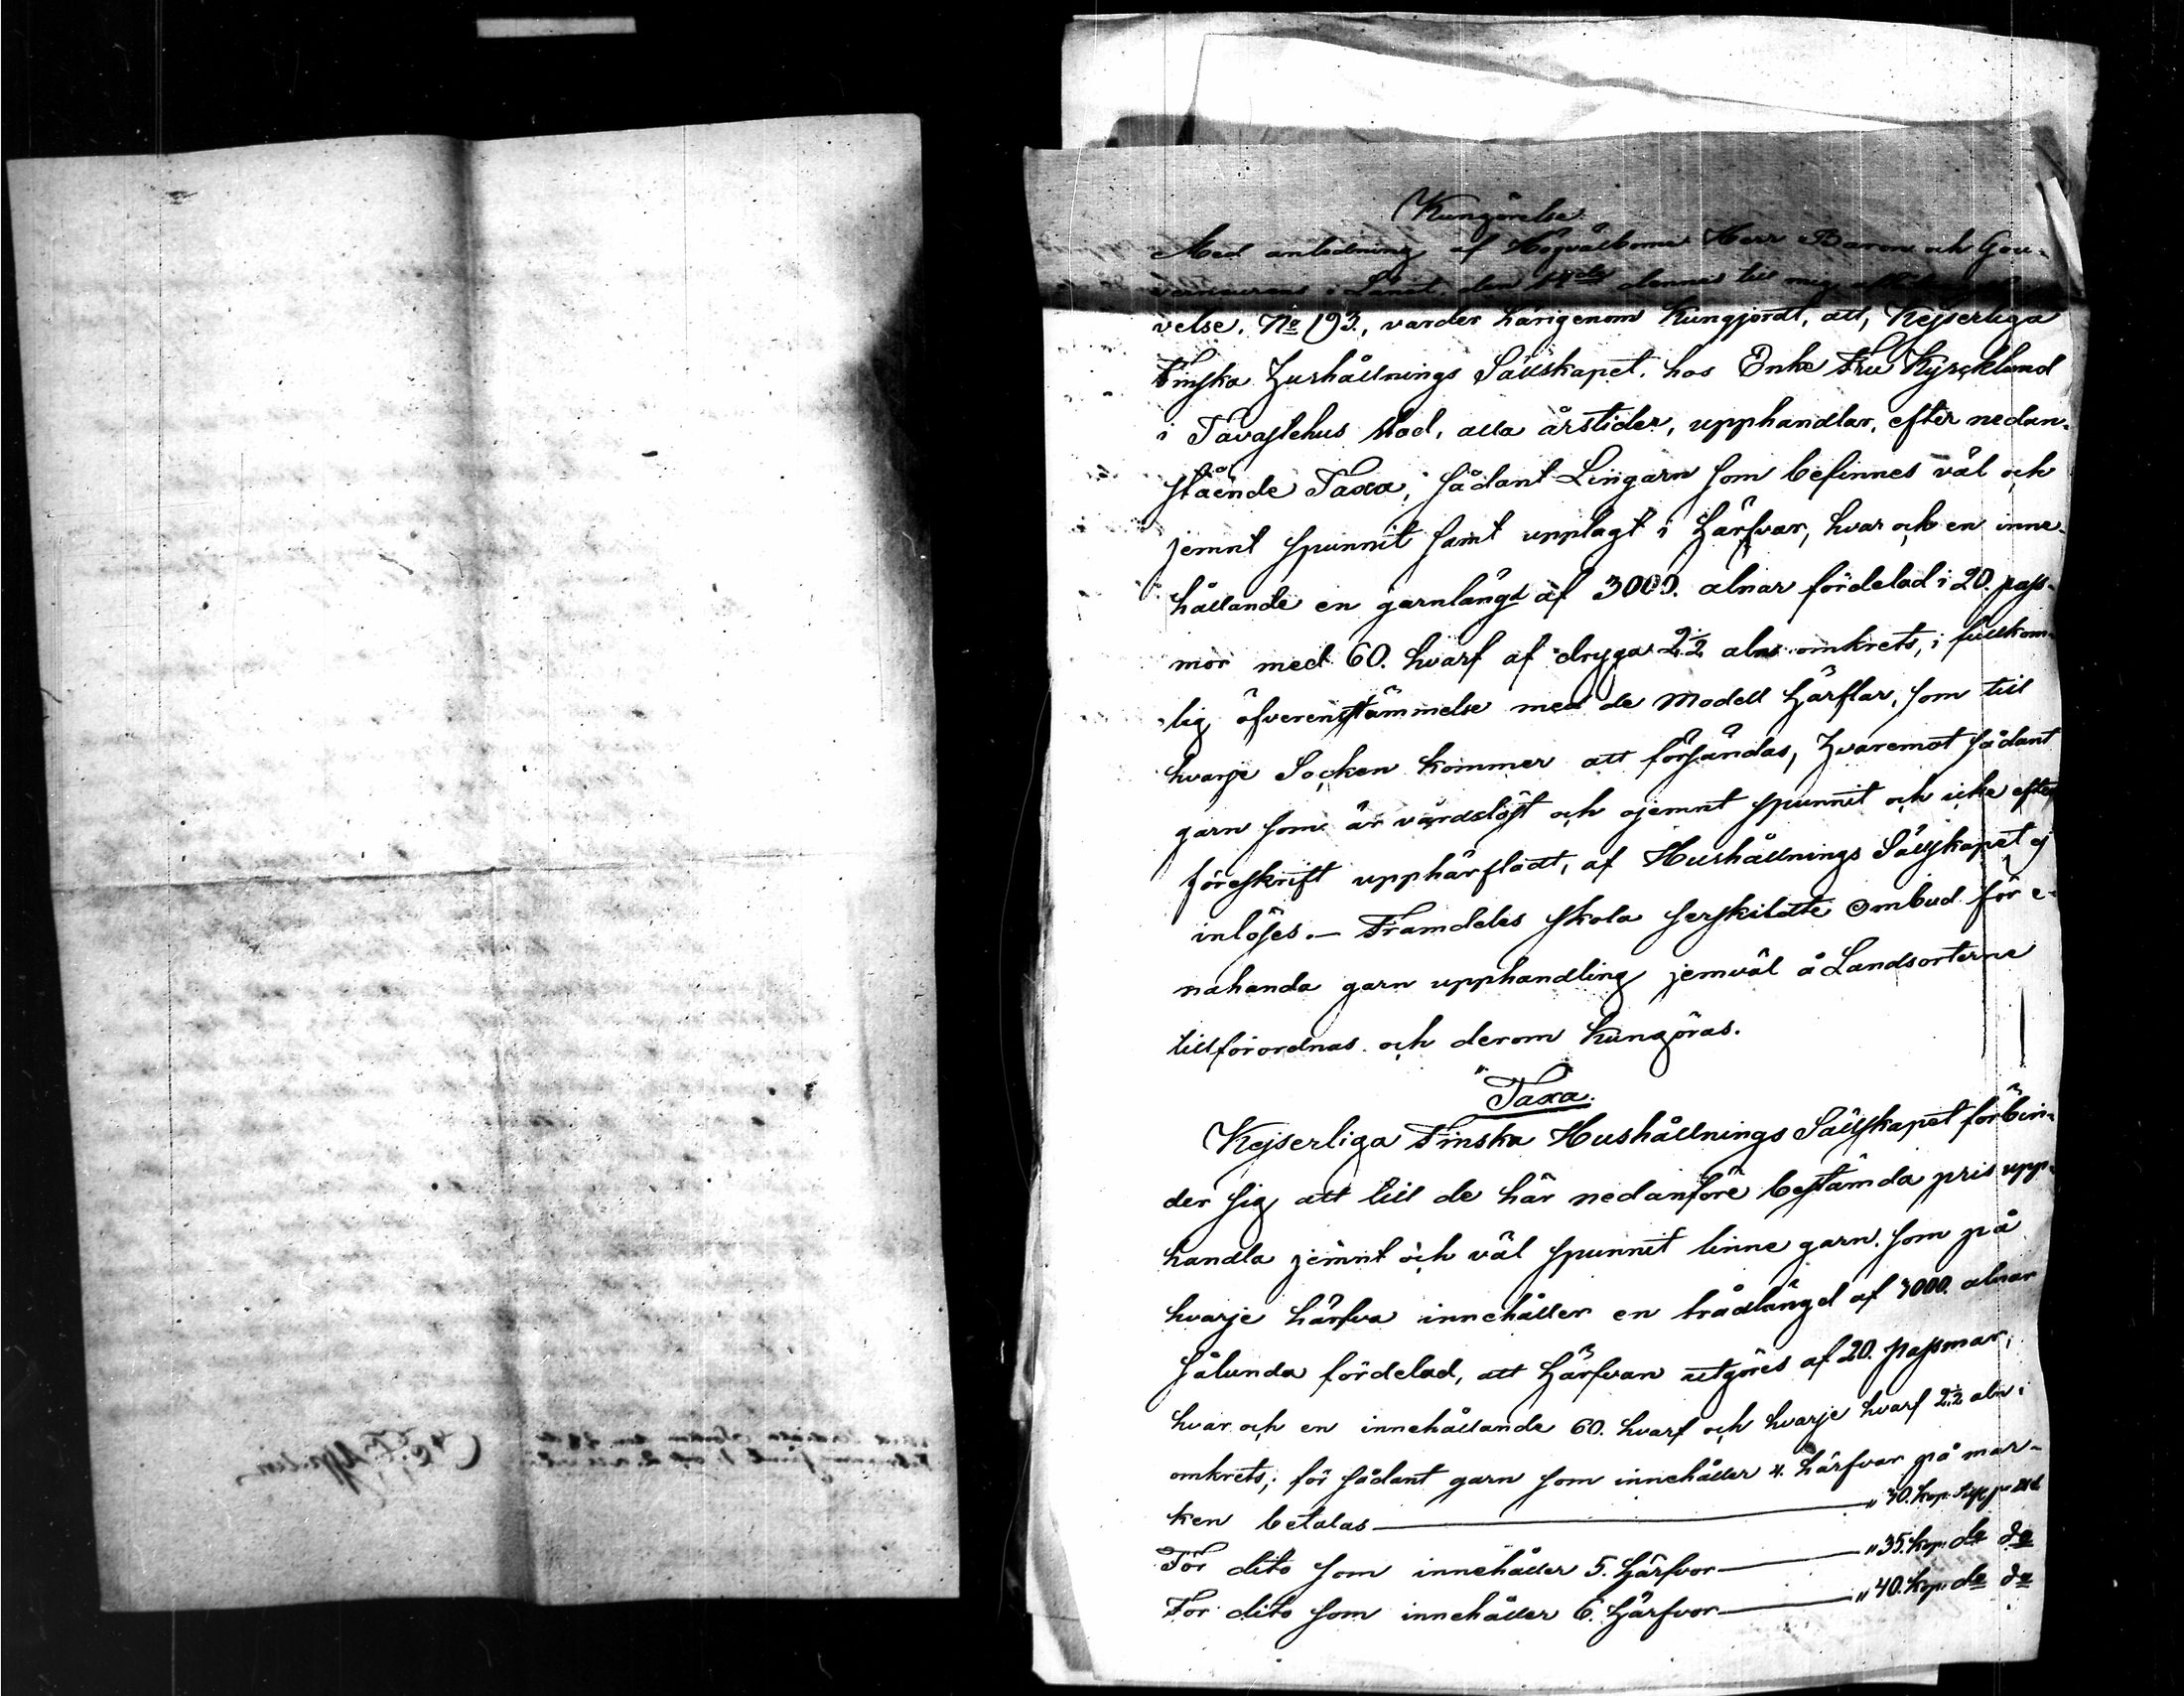 Kungörelse.
Med anledning af Högvälborne Herr Baron och Gou-
verneurens i Länet, den 14de dennes till mig
velse, No 193., varder härigenom kungjordt, att, Kejserliga
Finska Hushållnings Sällskapet, hos Enke Fru Kyrcklund
i Tavastehus stad, alla årstider, upphandlar, efter nedan-
stående Taxa, sådant Lingarn som befinnes väl och
jemnt spunnit samt upplagt i Härfvar, hvar och en inne-
hållande en garnlängd af 3000. alnar fördelad i 20. pass-
mor med 60. hvarf af dryga 2 1/2 aln omkrets, i fullkom-
lig öfverensstämmelse med de Modell Härflar, som till
hvarje Socken kommer att försändas, Hvaremot sådant
garn som är vårdslöst och ojemnt spunnit och icke efter
föreskrift upphärfladt, af Hushållnings Sällskapet ej
inlöses. — Framdeles skola serskildte Ombud för e-
nahanda garn upphandling jemväl å Landsorterne
tillförordnas och derom kungöras.
Taxa.
Kejserliga Finska Hushållnings Sällskapet förbin-
der sig att till de här nedanföre bestämda pris upp-
handla jemnt och väl spunnit linne garn, som på
hvarje härfva innehåller en trådlängd af 3000. alnar
sålunda fördelad, att Härfvan utgöres af 20. passmar,
hvar och en innehållande 60. hvarf och hvarje hvarf 2 1/2 aln i
omkrets; för sådant garn som innehåller 4. härfvar på mar-
ken betalas — " 30. kop.
För dito som innehåller 5. Härfvor — " 35. kop. do do
För dito som innehåller 6. Härfvor — " 40. kop. do do